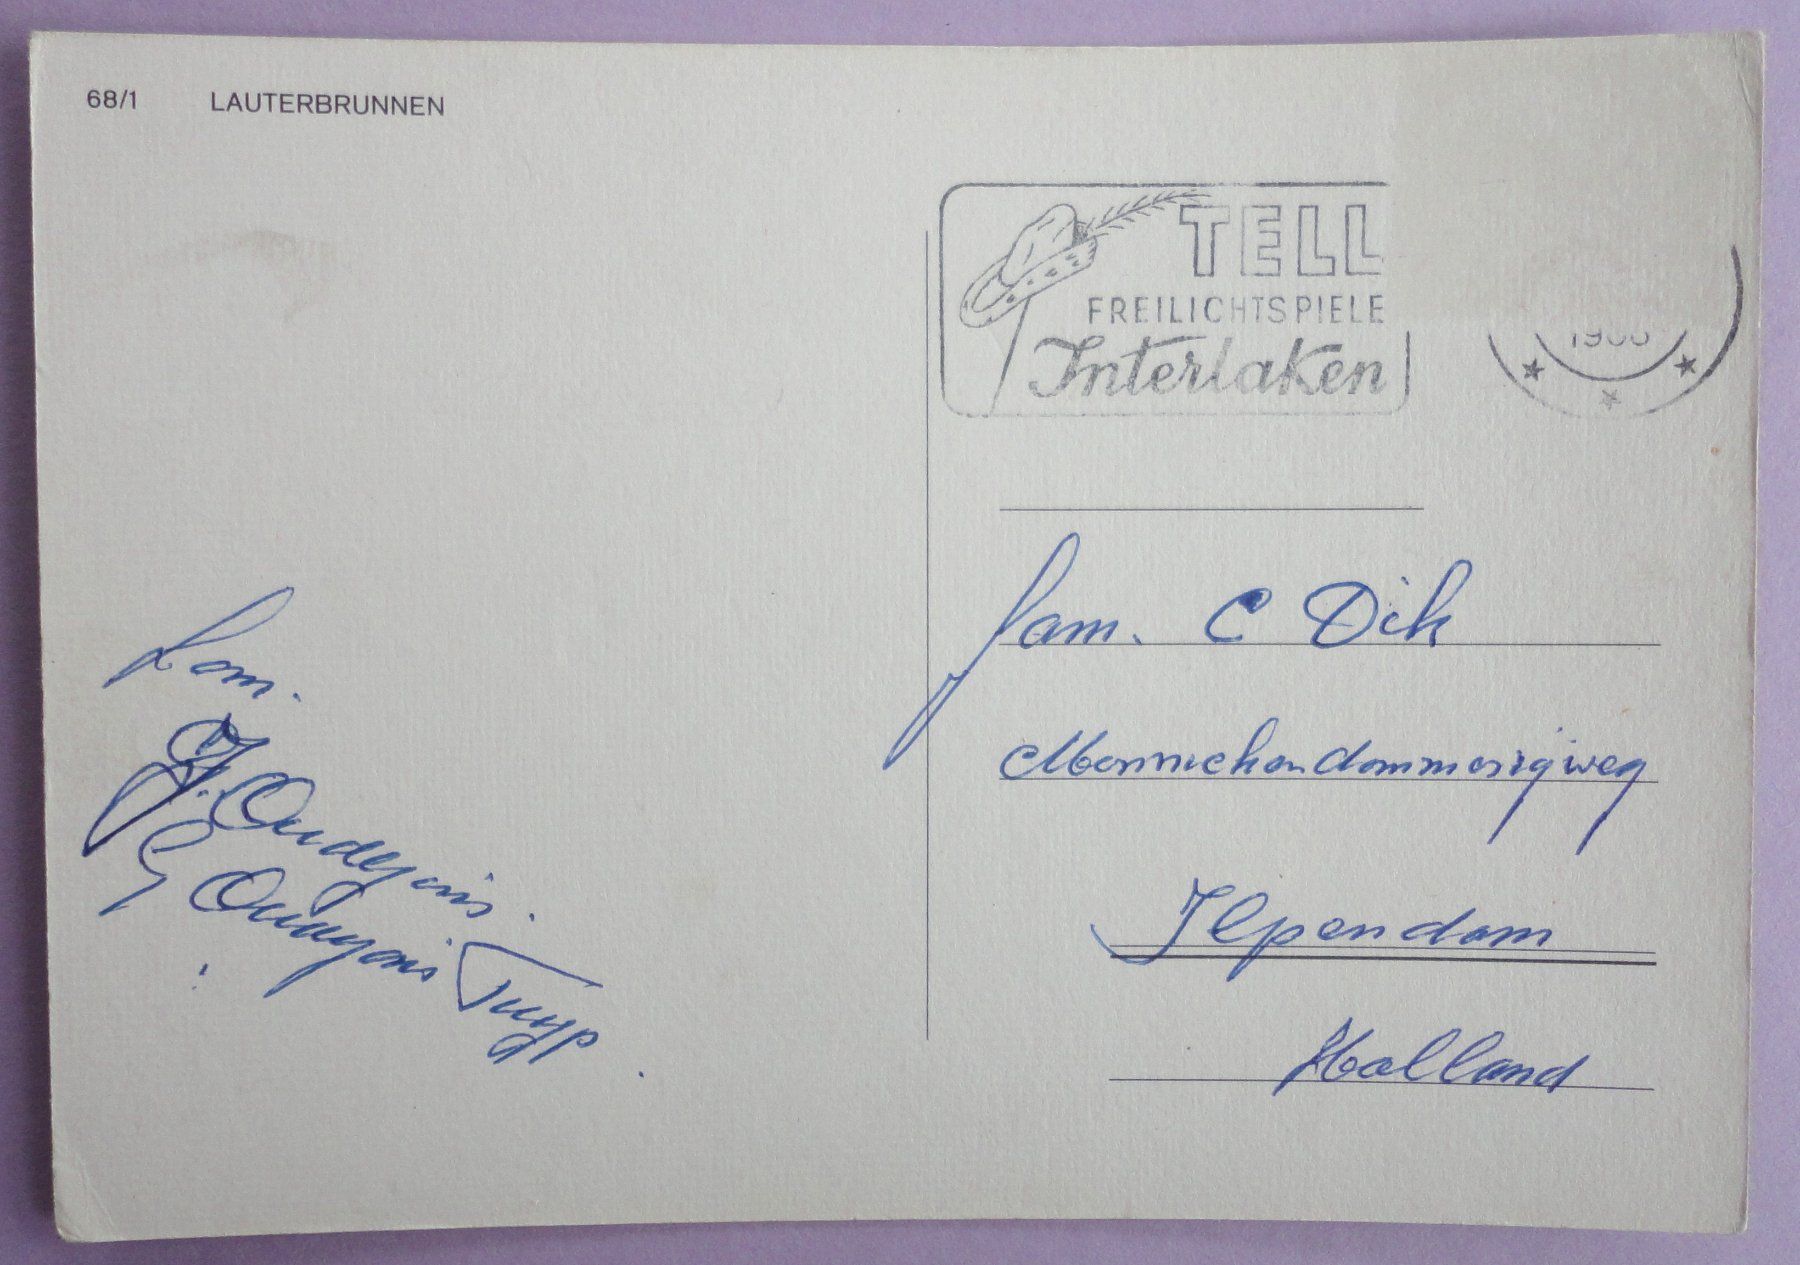 68/1 LAUTERBRUNNEN
TELL
FREILICHTSPIELE
Interlaken
Fam.
J. Oudejans.
G Oudejans Tuyp.
fam. C Dik
Monnickendammerrijweg
Ilpendam
Holland